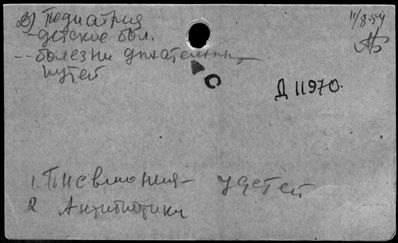 в) Педиатрия
- детские бол.
-- болезни дыхательных
путей
11/8-54
С
Д 11970.
1. Пневмония - у детей
2 Антибиотики